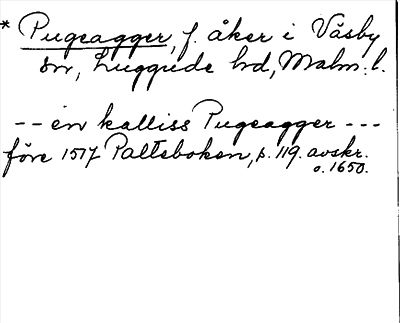 * Pugeagger, f. åker i Väsby
sn, Luggude hd, Malm. l.
-- en kalliss Pugeagger ---
före 1517 Palteboken, s. 119. avskr.
o. 1650.